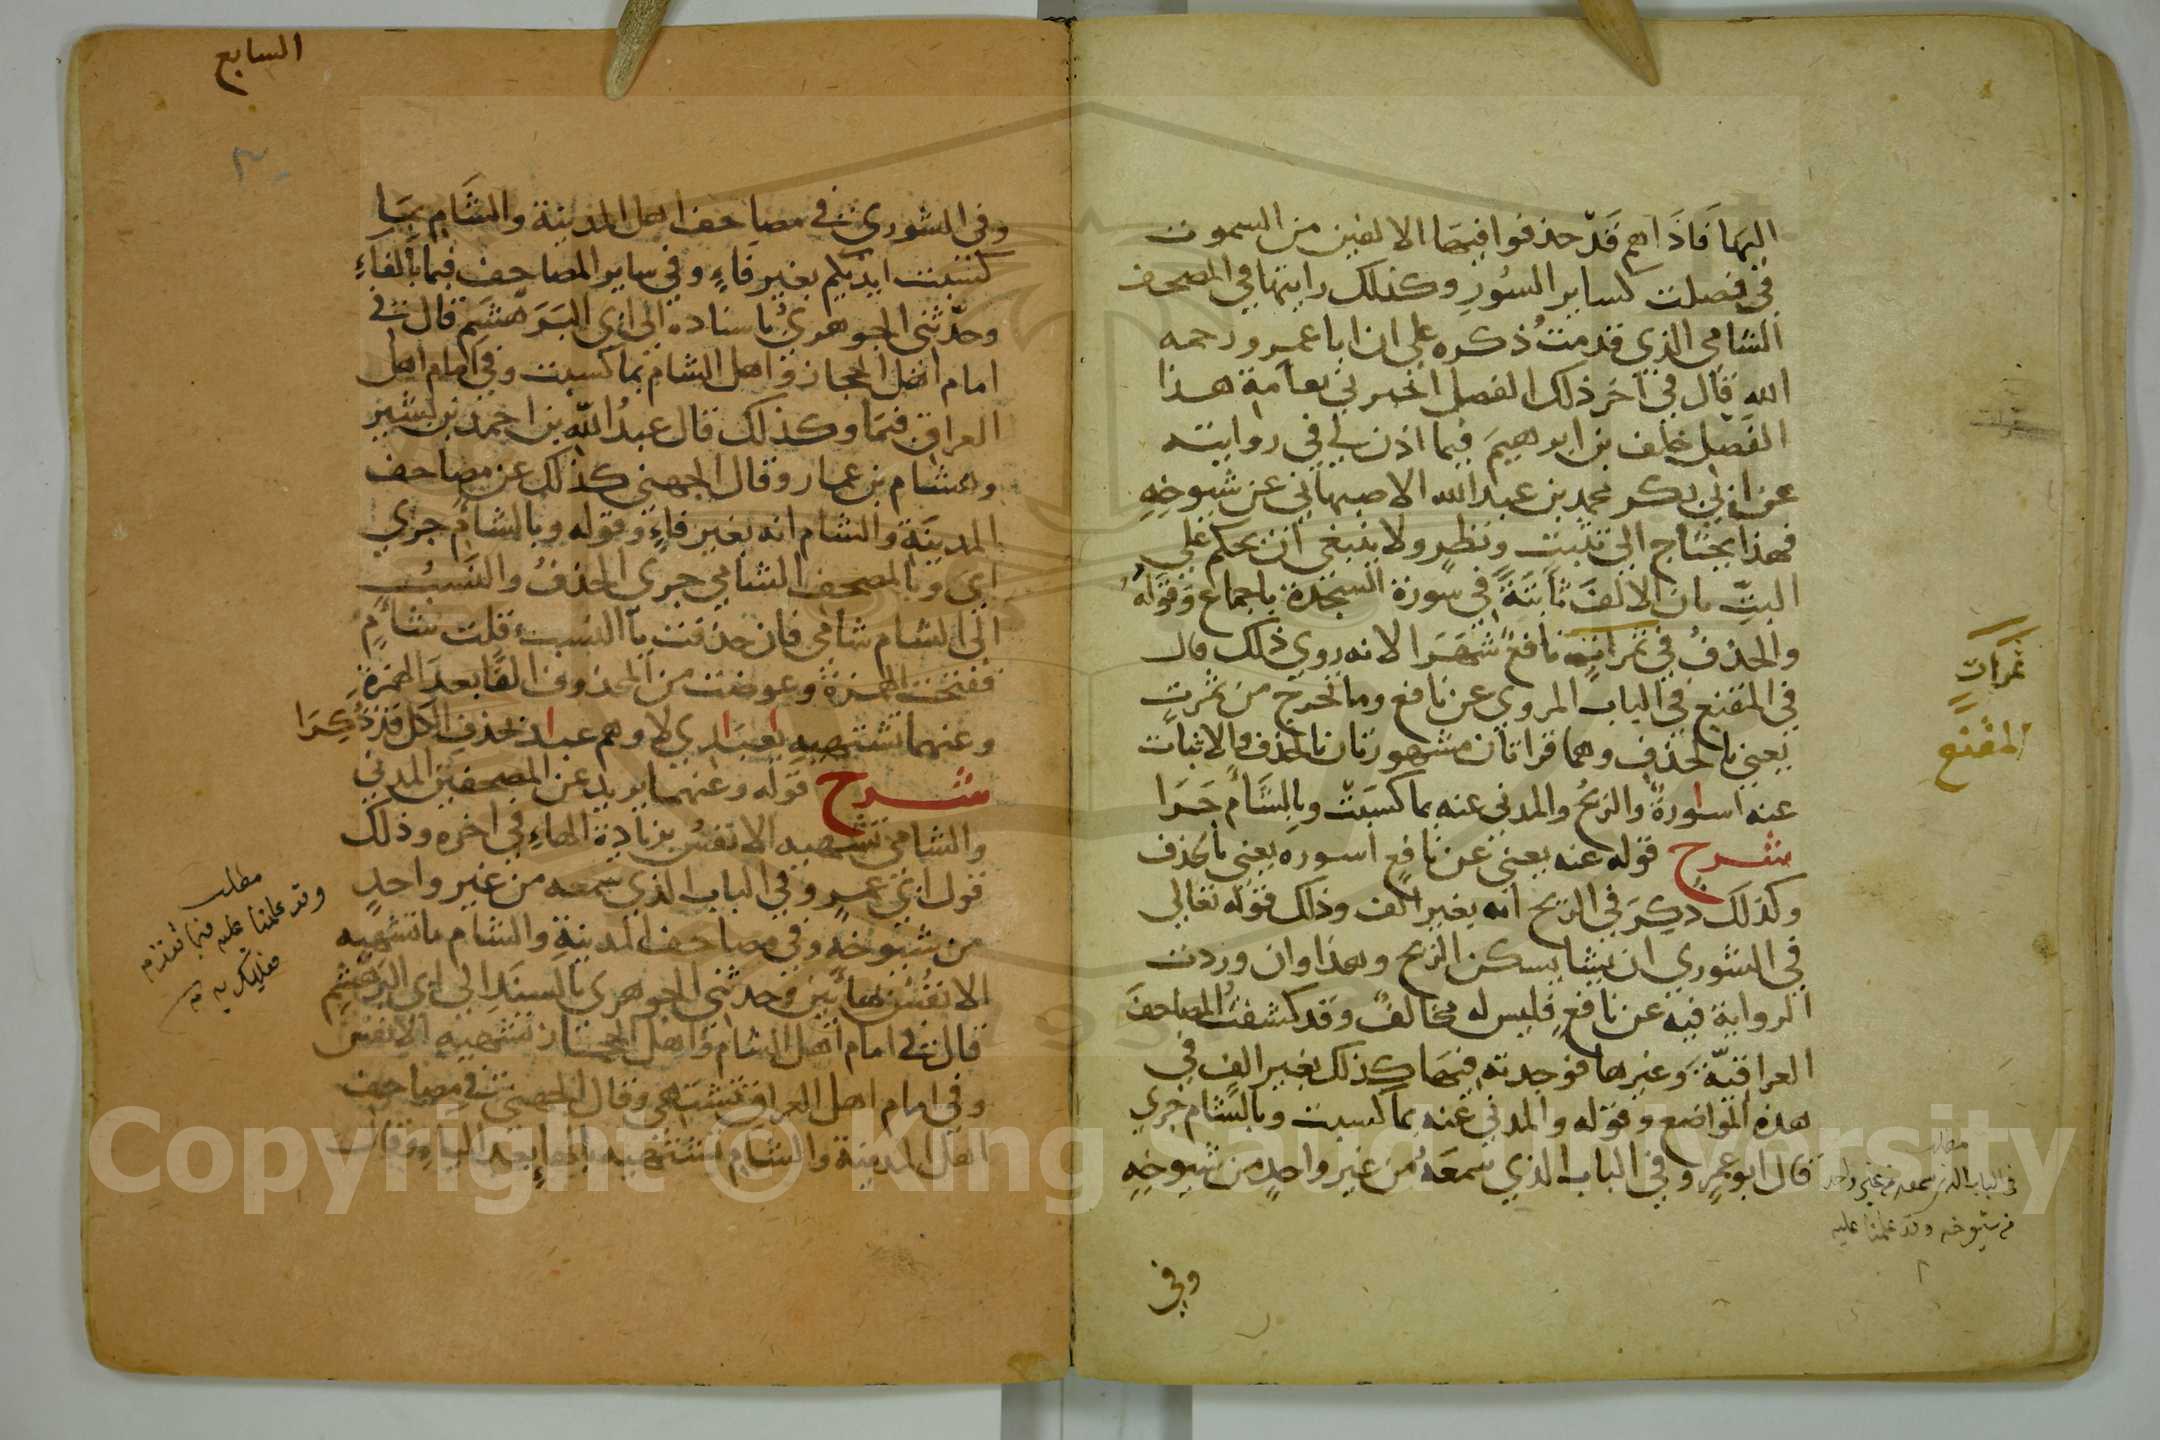 اليها فاذاهم قد حذفوا فيها الالفين من السموت
في فصلت كساير السور وكذلك رايتها في المصحف
الشامي الذي قدمت ذكره على ان ابا عمرو رحمه
الله قال في آخر ذلك الفصل اخبرني بعامة هذا
الفصل خلف بن ابرهيم فيما اذن لي في روايته
عن ابي بكر محمد بن عبدالله الاصبهاني عن شيوخه
فهذا يحتاج الى تثبت ونظر ولا ينبغي ان يحكم على
البت بان الالف ثابتة في سورة السجدة باجماع وقوله
والحذف في ثمرات نافع شهرا لانه روي ذلك قال
في المقنع في الباب المروي عن نافع وما تخرج من ثمرت
يعني بالحذف وهما قراتان مشهورتان بالحذف والاثبات
عنه اساورة والريح والمدني عنه بما كسبت وبالشام جرا
شرح قوله عنه يعني عن نافع اسوره يعني بالحذف
وكذلك ذكر في الريح انه بغير الف وذلك قوله تعالى
في الشوري ان يشا يسكن الريح وهذا وان وردت
الرواية فيه عن نافع فليس له مخالف وقد كشفت المصاحف
العراقية وغيرها فوجدته فيها كذلك بغير الف في
هذه المواضع وقوله والمدني عنه بما كسبت وبالشام جري
قال ابو عمرو وفي الباب الذي سمعه من غير واحد من شيوخه
وفي
ثمرات
المقنع
مطلب
في الباب الذي سمعه من غير واحد
من شيوخه وقد علمنا عليه
السابع
وفي الشوري في مصاحف اهل المدينة والشام بما
كسبت ايديكم بغير فاء وفي ساير المصاحف فبما بالفاء
وحدثني الجوهري باسناده الى ابي البرهشم قال في
امام اهل الحجاز واهل الشام بما كسبت وفي امام اهل
العراق فبما وكذلك قال عبدالله بن احمد بن بشير
وهشام بن عمار وقال الجهني كذلك عن مصاحف
المدينة والشام انه بغير فاء وقوله وبالشام جري
اي وبالمصحف الشامي جري الحذف والنسب
الى الشام شامي فان حذفت يا النسب قلت شام
ففتحت الهمزة وعوضت من المحذوف الفا بعد الهمزة
وعنهما تشتهيه يعبادي لا وهم عباد بحذف الكل قد ذكرا
شرح قوله وعنهما يريد عن المصحفين المدني
والشامي تشتهيه الانفس بزيادة الهاء في اخره وذلك
قول ابي عمرو وفي الباب الذي سمعه من غير واحد
من شيوخه وفي مصاحف المدينة والشام ما تشتهيه
الانفس بهائين وحدثني الجوهري بالسند الى ابي البرهشم
قال في امام اهل الشام واهل الحجاز تشتهيه الانفس
وفي امام اهل العراق تشتهي وقال الجهني في مصاحف
اهل المدينة والشام تشتهيه بالهاء بعد الياء وقال
مطلب
وقد علمنا عليه فيما تقدم
Copyright © King Saud University